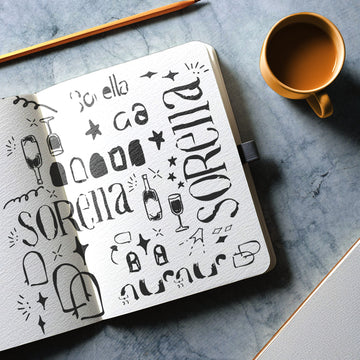 Sorella
a a
SORElla
SORElla